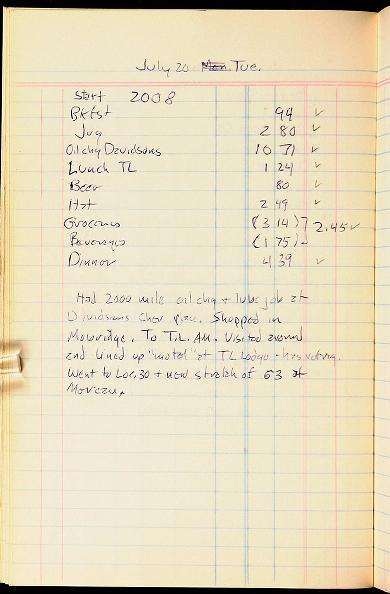 July 20 Mon. Tue.
Start 2008
Bkfst 94 ✓
Jug 2 80 ✓
Oil chg Davidsons 10 71 ✓
Lunch TL 1 24 ✓
Beer 80 ✓
Hat 2 49 ✓
Groceries (3 14)
2.45 ✓
Beverages (1 75)
Dinner 4 39 ✓
Had 2000 mile oil chg + lube job at
Davidsons Chev place. Shopped in
Mobridge. To T.L. AM. Visited around
and lined up "motel" at TL Lodge -
Went to Loc. 30 + new stretch of 63 at
Moreau.